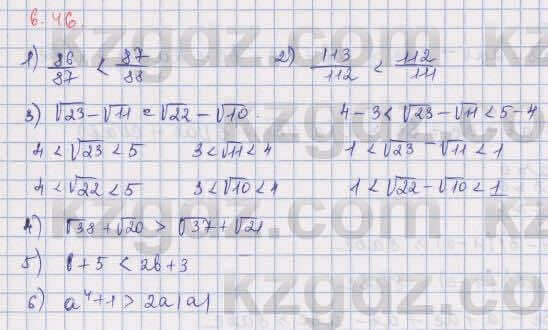 6.46.
1) 86/87 < 87/88 2) 113/112 < 112/111
3) √23 - √11 < √22 - √10. 4 - 3 < √23 - √11 < 5 - 4
4 < √23 < 5 3 < √11 < 4 1 < √23 - √11 < 1
4 < √22 < 5 3 < √10 < 4 1 < √22 - √10 < 1
4) √38 + √20 > √37 + √21
5) b + 5 < 2b + 3
6) a⁴ + 1 > 2a|a|
kzgaz.com